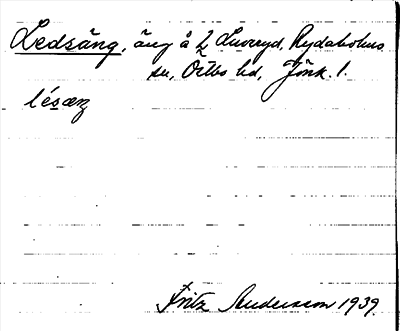 Ledsäng, äng å 2 Luvryd, Rydaholms
sn, Östbo hd, Jönk. l.
lésæŋ
Fritz Andersson 1939.